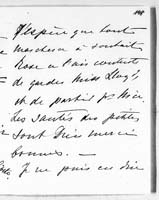 J'espère que tout
marchera à souhait
Rose a l'air contente
de garder Miss
et de partir
Les santés des petites
sont Dieu merci
bonnes. —
Je ne puis en dire